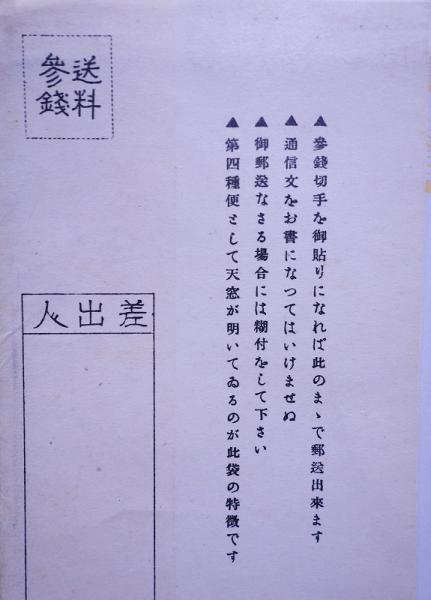 送料
參錢
▲參錢切手を御貼りになれば此のまゝで郵送出來ます
▲通信文をお書になつてはいけませぬ
▲御郵送なさる場合には糊付をして下さい
▲第四種便として天窓が明いてゐるのが此袋の特徴です
差出人